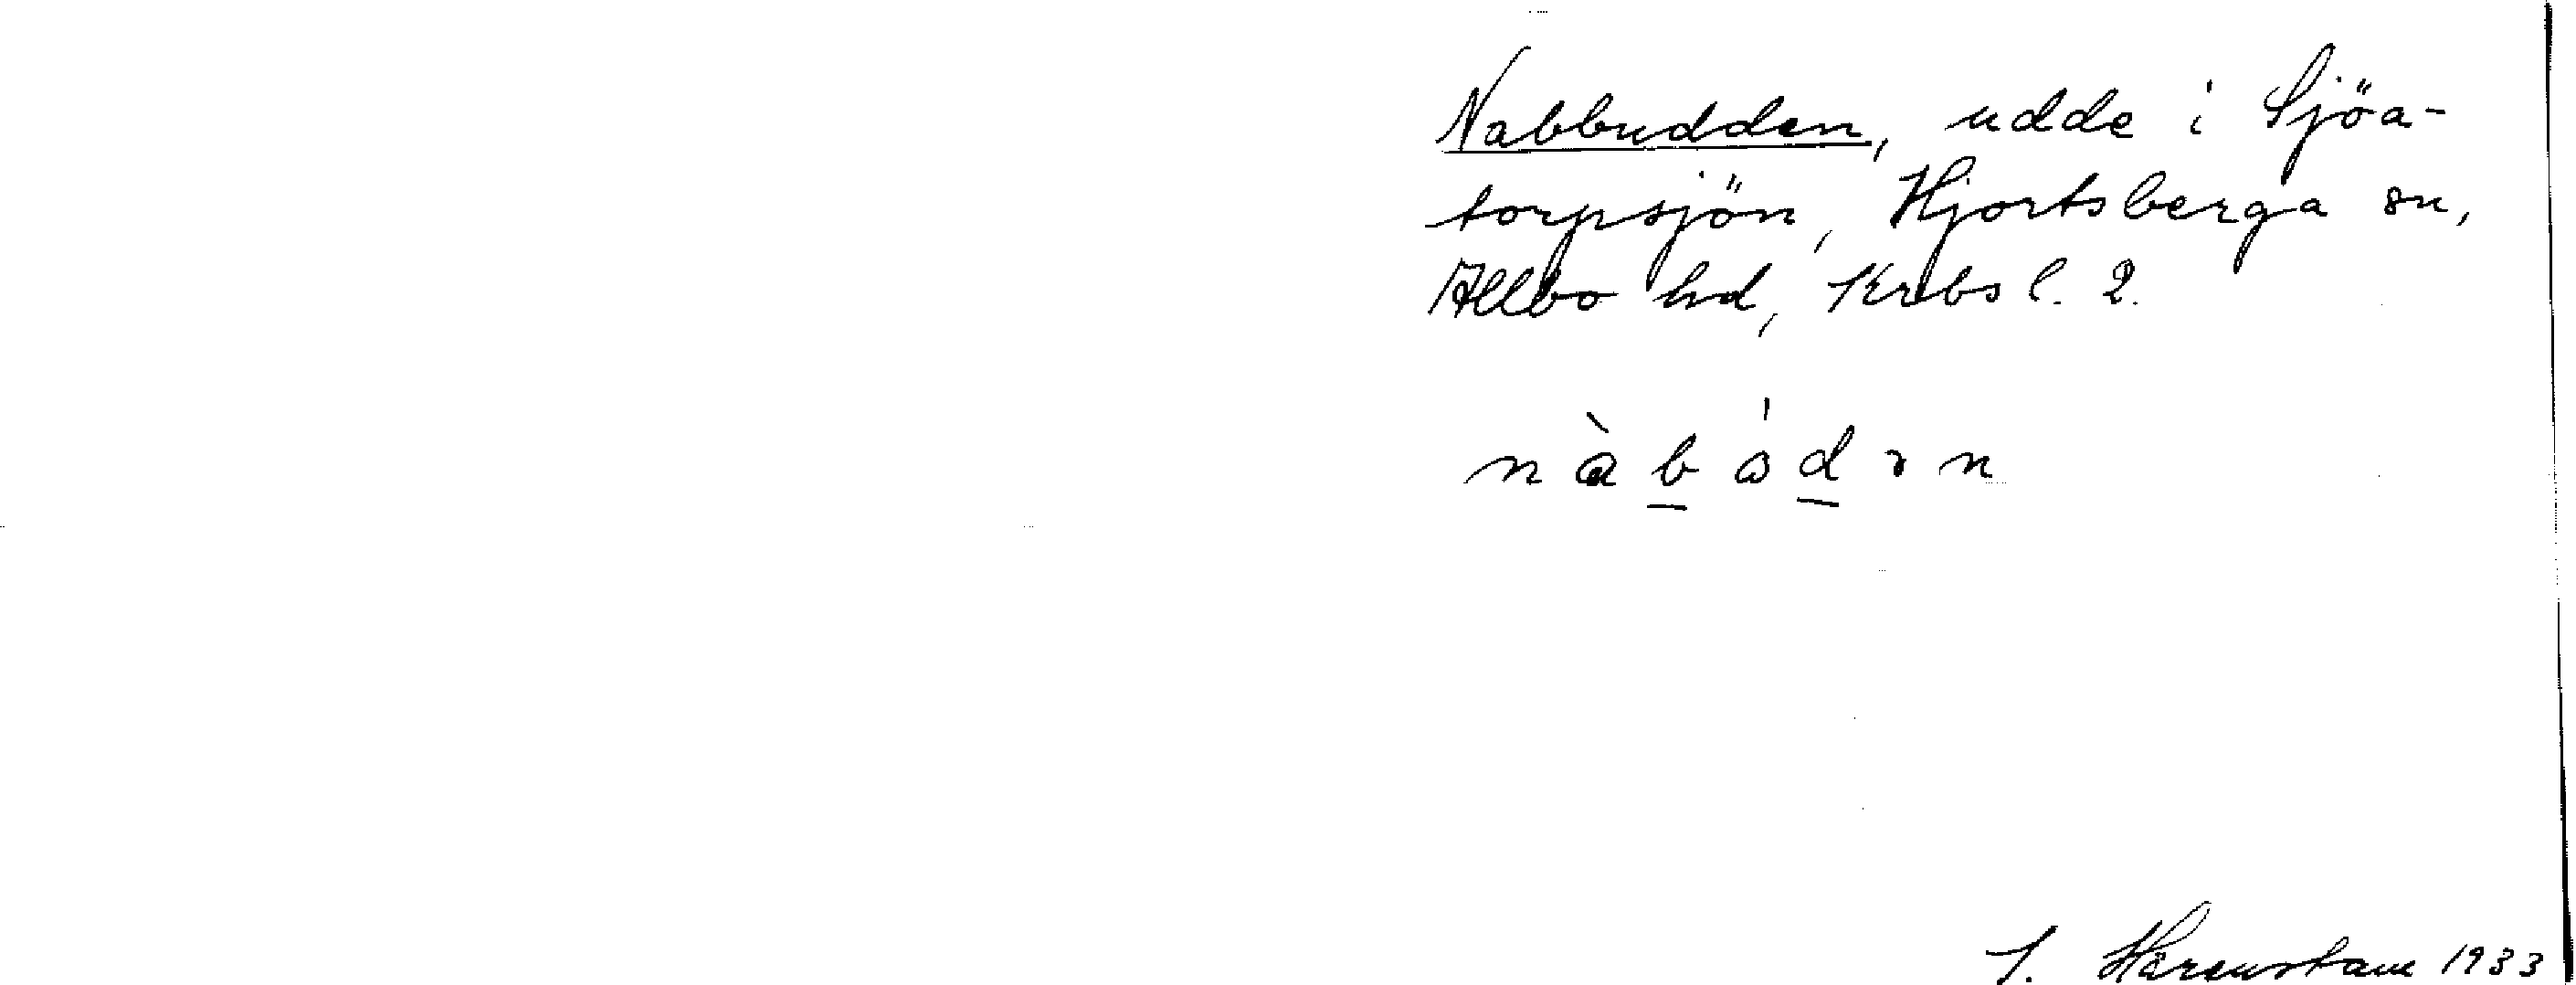 Nabbudden, udde i Sjöa-
torpsjön, Hjortsberga sn,
Allbo hd, Krbs l. 2.
nàbådən
S. Härenstam 1933